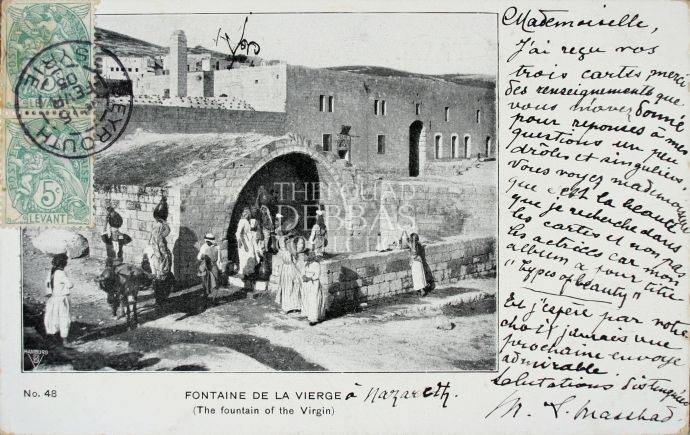 BEYROUTH
SYRIE
5c
LEVANT
LEVANT
THE FOUAD
DEBBAS
No. 48
FONTAINE DE LA VIERGE à Nazareth.
(The fountain of the Virgin)
Mademoiselle,
J'ai reçu vos
trois cartes merci
des renseignements que
vous m'avez donné
pour reponses à mes
questions un peu
drôles et singulières,
Vous voyez mademoiselle
que c'est la beauté
que je recherche dans
les cartes et non pas
les actrices car mon
album a pour titre
"Types of beauty"
Et j'espère par votre
choix jamais une
prochaine envoye
admirable
Salutations distinguées
M. S. Masshad.